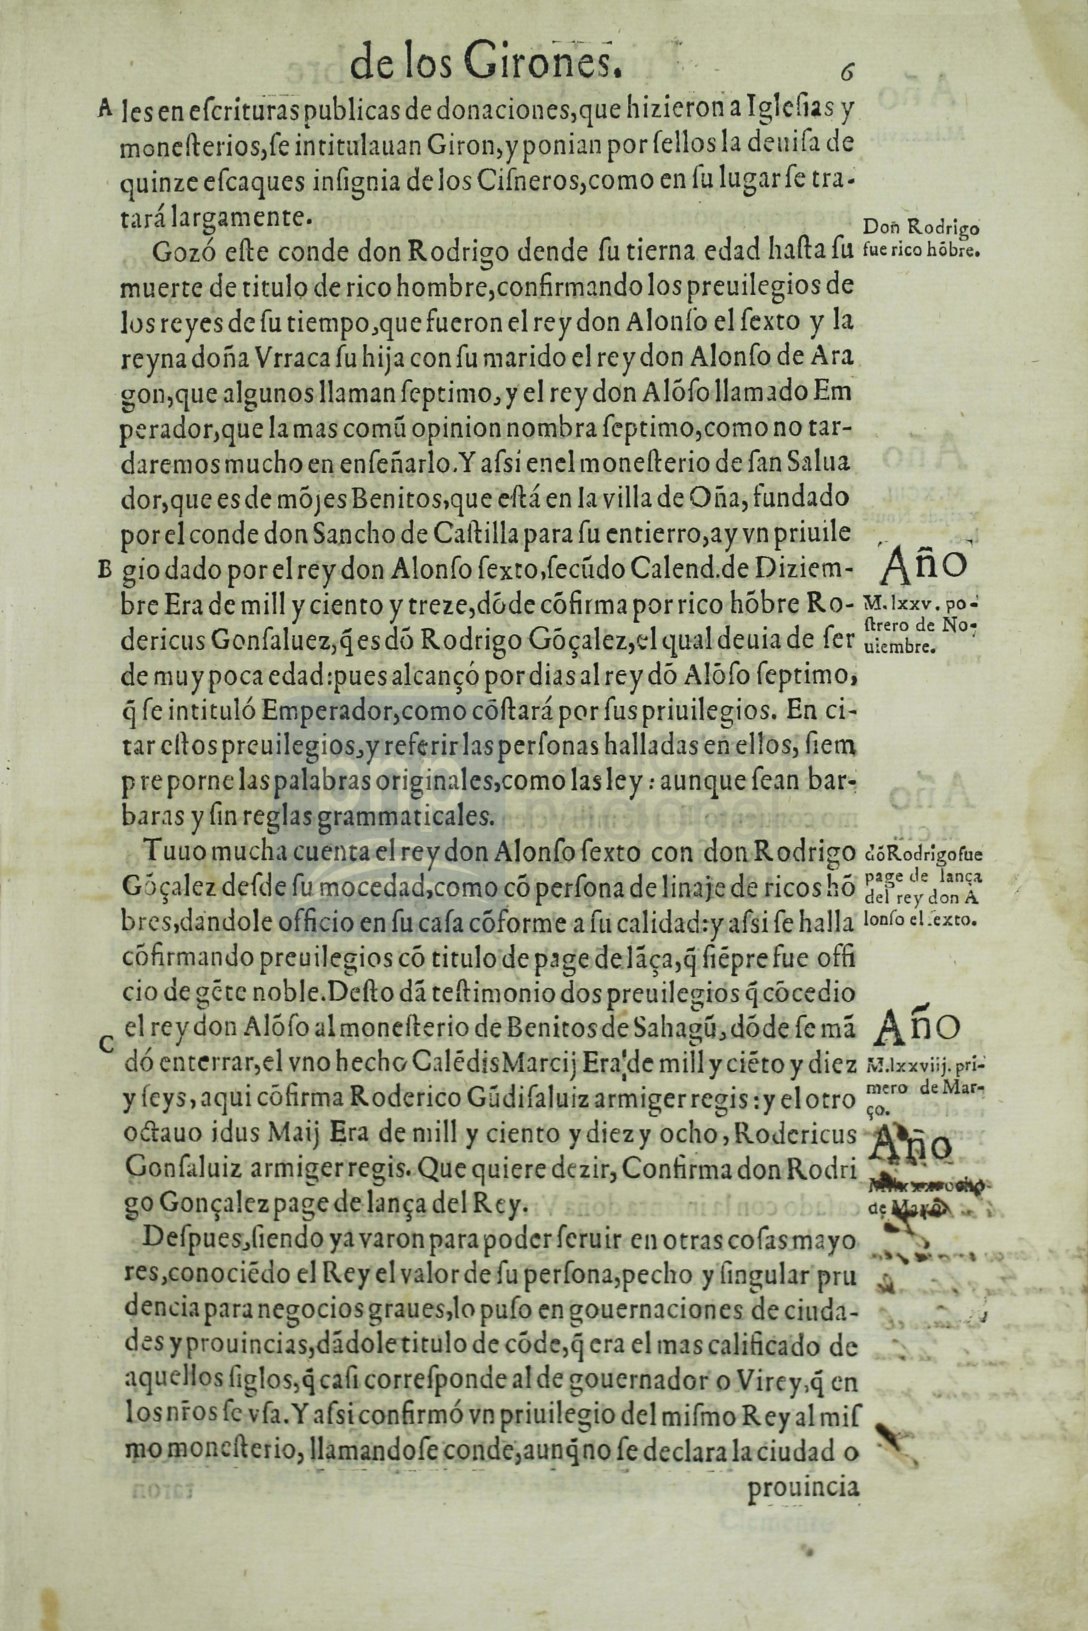 de los Girones.
6
A les en eſcrituras publicas de donaciones, que hizieron a Igleſias y
moneſterios, ſe intitulauan Giron, y ponian por ſellos la deuiſa de
quinze eſcaques inſignia de los Ciſneros, como en ſu lugar ſe tra-
tará largamente.
Gozó eſte conde don Rodrigo dende ſu tierna edad haſta ſu
muerte de titulo de rico hombre, confirmando los preuilegios de
los reyes de ſu tiempo, que fueron el rey don Alonſo el ſexto y la
reyna doña Vrraca ſu hija con ſu marido el rey don Alonſo de Ara
gon, que algunos llaman ſeptimo, y el rey don Alõſo llamado Em
perador, que la mas comũ opinion nombra ſeptimo, como no tar-
daremos mucho en enſeñarlo. Y aſsi enel moneſterio de ſan Salua
dor, que es de mõjes Benitos, que eſtá en la villa de Oña, fundado
por el conde don Sancho de Caſtilla para ſu entierro, ay vn priuile
B gio dado por el rey don Alonſo ſexto, ſecũdo Calend. de Diziem-
bre Era de mill y ciento y treze, dõde cõfirma por rico hõbre Ro-
dericus Gonſaluez, q̃ es dõ Rodrigo Gõçalez, el qual deuia de ſer
de muy poca edad: pues alcançó por dias al rey dõ Alõſo ſeptimo,
q̃ ſe intituló Emperador, como cõſtará por ſus priuilegios. En ci-
tar eſtos preuilegios, y referir las perſonas halladas en ellos, ſiem
pre porne las palabras originales, como las ley: aunque ſean bar-
baras y ſin reglas grammaticales.
Tuuo mucha cuenta el rey don Alonſo ſexto con don Rodrigo
Gõçalez deſde ſu mocedad, como cõ perſona de linaje de ricos hõ
bres, dandole officio en ſu caſa cõforme a ſu calidad: y aſsi ſe halla
cõfirmando preuilegios cõ titulo de page de lãça, q̃ ſiẽpre fue offi
cio de gẽte noble. Deſto dã teſtimonio dos preuilegios q̃ cõcedio
el rey don Alõſo al moneſterio de Benitos de Sahagũ, dõde ſe mã
C dó enterrar, el vno hecho Calẽdis Marcij Era de mill y ciẽto y diez
y ſeys, aqui cõfirma Roderico Gũdiſaluiz armiger regis: y el otro
octauo idus Maij Era de mill y ciento y diez y ocho, Rodericus
Gonſaluiz armiger regis. Que quiere dezir, Confirma don Rodri
go Gonçalez page de lança del Rey.
Deſpues, ſiendo ya varon para poder ſeruir en otras coſas mayo
res, conociẽdo el Rey el valor de ſu perſona, pecho y ſingular pru
dencia para negocios graues, lo puſo en gouernaciones de ciuda-
des y prouincias, dãdole titulo de cõde, q̃ era el mas calificado de
aquellos ſiglos, q̃ caſi correſponde al de gouernador o Virey, q̃ en
los nr̃os ſe vſa. Y aſsi confirmó vn priuilegio del miſmo Rey al miſ
mo moneſterio, llamandoſe conde, aunq̃ no ſe declara la ciudad o
prouincia
Don Rodrigo
fue rico hõbre.
Año
M.lxxv. po-
ſtrero de No-
uiembre.
dõ Rodrigo fue
page de lança
del rey don A
lonſo el ſexto.
Año
M.lxxviij. pri-
mero de Mar-
ço.
Año
ocho
de Mayo